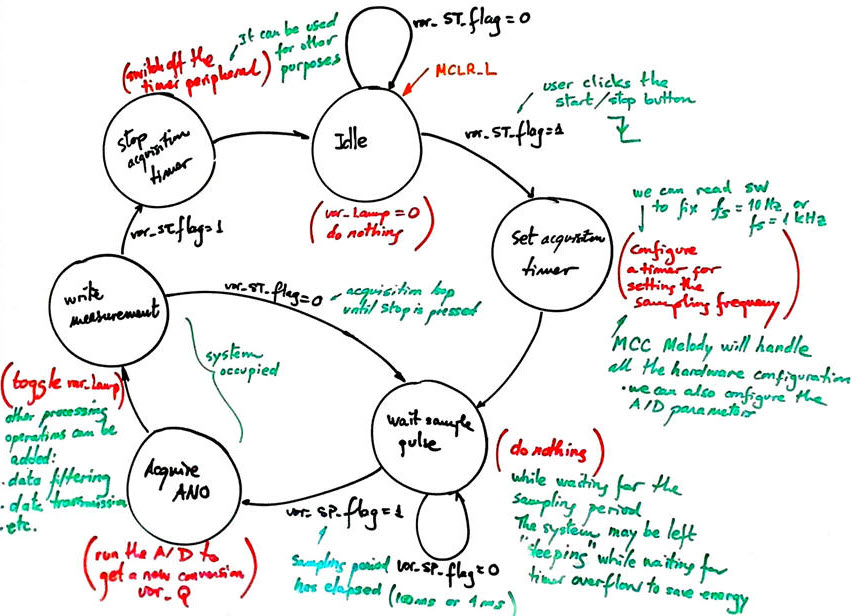 var_ST_flag = 0
It can be used
for other
purposes
(switch off the
timer peripheral)
MCLR_L
user clicks the
start/stop button
var_ST_flag=1
Stop
acquisition
timer
Idle
(var_Lamp = 0
do nothing)
we can read SW
to fix fs = 10 Hz or
fs = 1 kHz
Set acquisition
timer
(configure
a timer for
setting the
sampling frequency)
var_ST_flag=1
write
measurement
var_ST_flag=0
acquisition loop
until stop is pressed
MCC Melody will handle
all the hardware configuration
· we can also configure the
A/D parameters
system
occupied
(toggle var_Lamp)
other processing
operations can be
added:
· data filtering
· data transmission
· etc.
wait sample
pulse
(do nothing)
while waiting for the
sampling period
The system may be left
"sleeping" while waiting for
timer overflow to save energy
Acquire
AN0
var_SP_flag=1
Sampling period
has elapsed (100ms or 1 ms)
var_SP_flag=0
(run the A/D to
get a new conversion
var_Q)